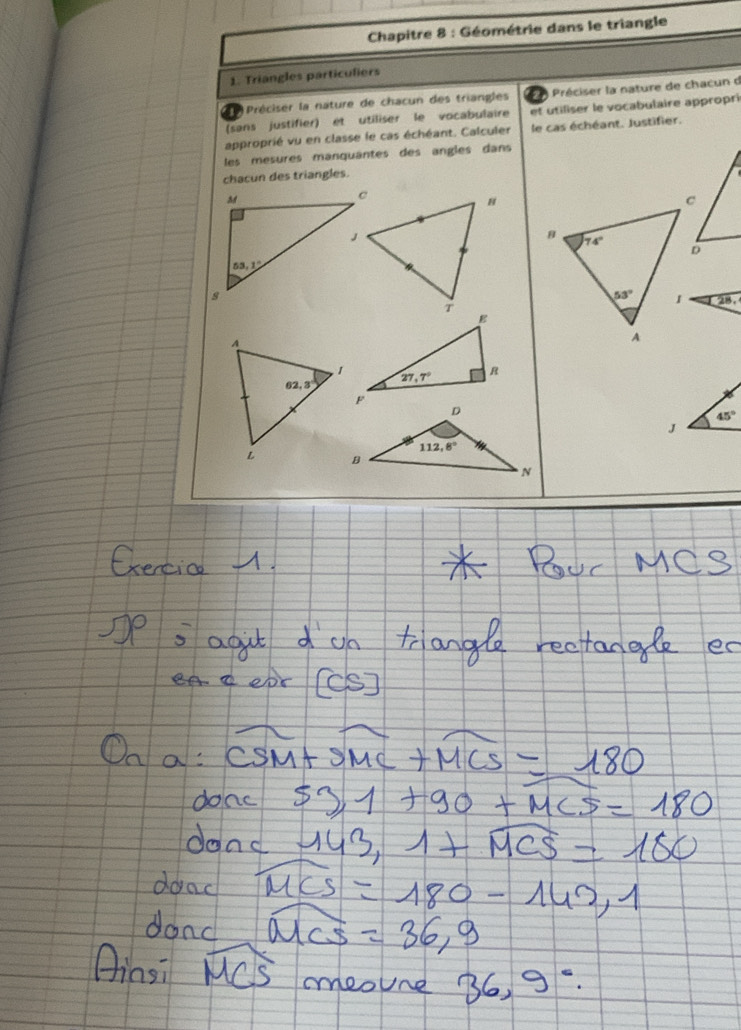 Chapitre 8 : Géométrie dans le triangle
1. Triangles particuliers
Préciser la nature de chacun des triangles
(sans justifier) et utiliser le vocabulaire
approprié vu en classe le cas échéant. Calculer
les mesures manquantes des angles dans
chacun des triangles.
M
C
S
53,1°
J
H
T
A
I
L
62,3°
E
F
R
27,7°
D
B
N
112,8°
2. Préciser la nature de chacun d
et utiliser le vocabulaire appropri
le cas échéant. Justifier.
B
C
A
74°
53°
D
I
28,
J
45°
Exercice 1.
* Pour MCS
Il s'agit d'un triangle rectangle en
[CS]
On a : CSM + SMC + MCS = 180
donc 53,1 + 90 + MCS = 180
donc 143,1 + MCS = 180
donc MCS = 180 - 143,1
donc MCS = 36,9
Ainsi MCS mesure 36,9°.